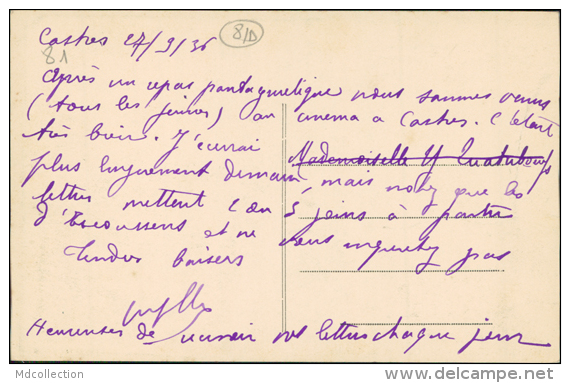 Castres 27/9/36
8/D
81
Après un repas pantagruelique nous sommes venus
(tous les jeunes) au cinema à Castres. C'était
très bien. J'écrirai Mademoiselle Y
plus longuement demain, mais notez que les
lettres mettent 2 ou 3 jours à partir
d'Escoussens et ne vous inquietez pas
Tendres baisers
Heureuses de recevoir vos lettres chaque jour
Mdcollection
delcampe.net